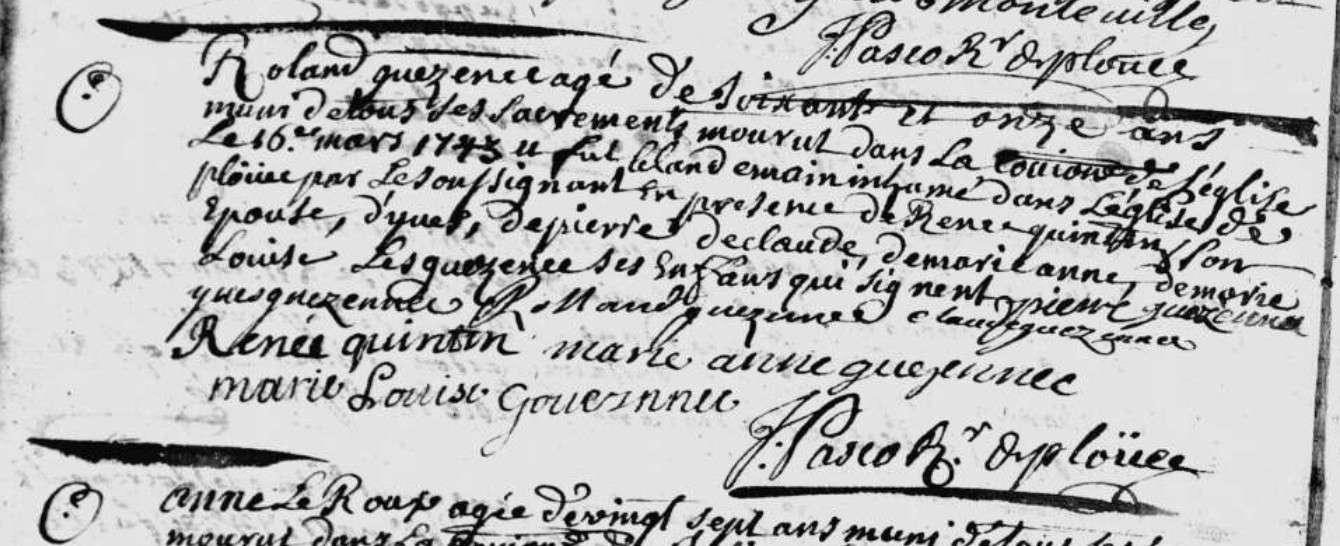 J. Pasco Rr de plouec
Roland quezenec agé de soixante et onze ans
muni de tous ses sacrements mourut dans la de l'église
Le 16.e mars 1743 il fut le landemain inhumé dans L'église de
ploüec par Le soussignant en presence de Renee quintin, son
Epouse, d'yues, de pierre de claude, de marie anne, de marie
Louise Les quezenec ses Enfans qui signent pierre quezennec
yues quezennec Rolland quezennec claude quezennec
Renée quintin marie anne quezennec
marie Louise Goueznnec
J. Pasco Rr. de ploüec
anne Le Roux agée de vingt sept ans muni de tous ses
mourut dans La